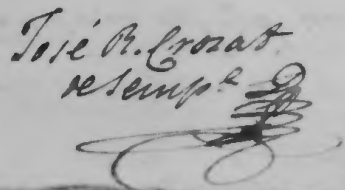 José R. Crozat
de Semp.e